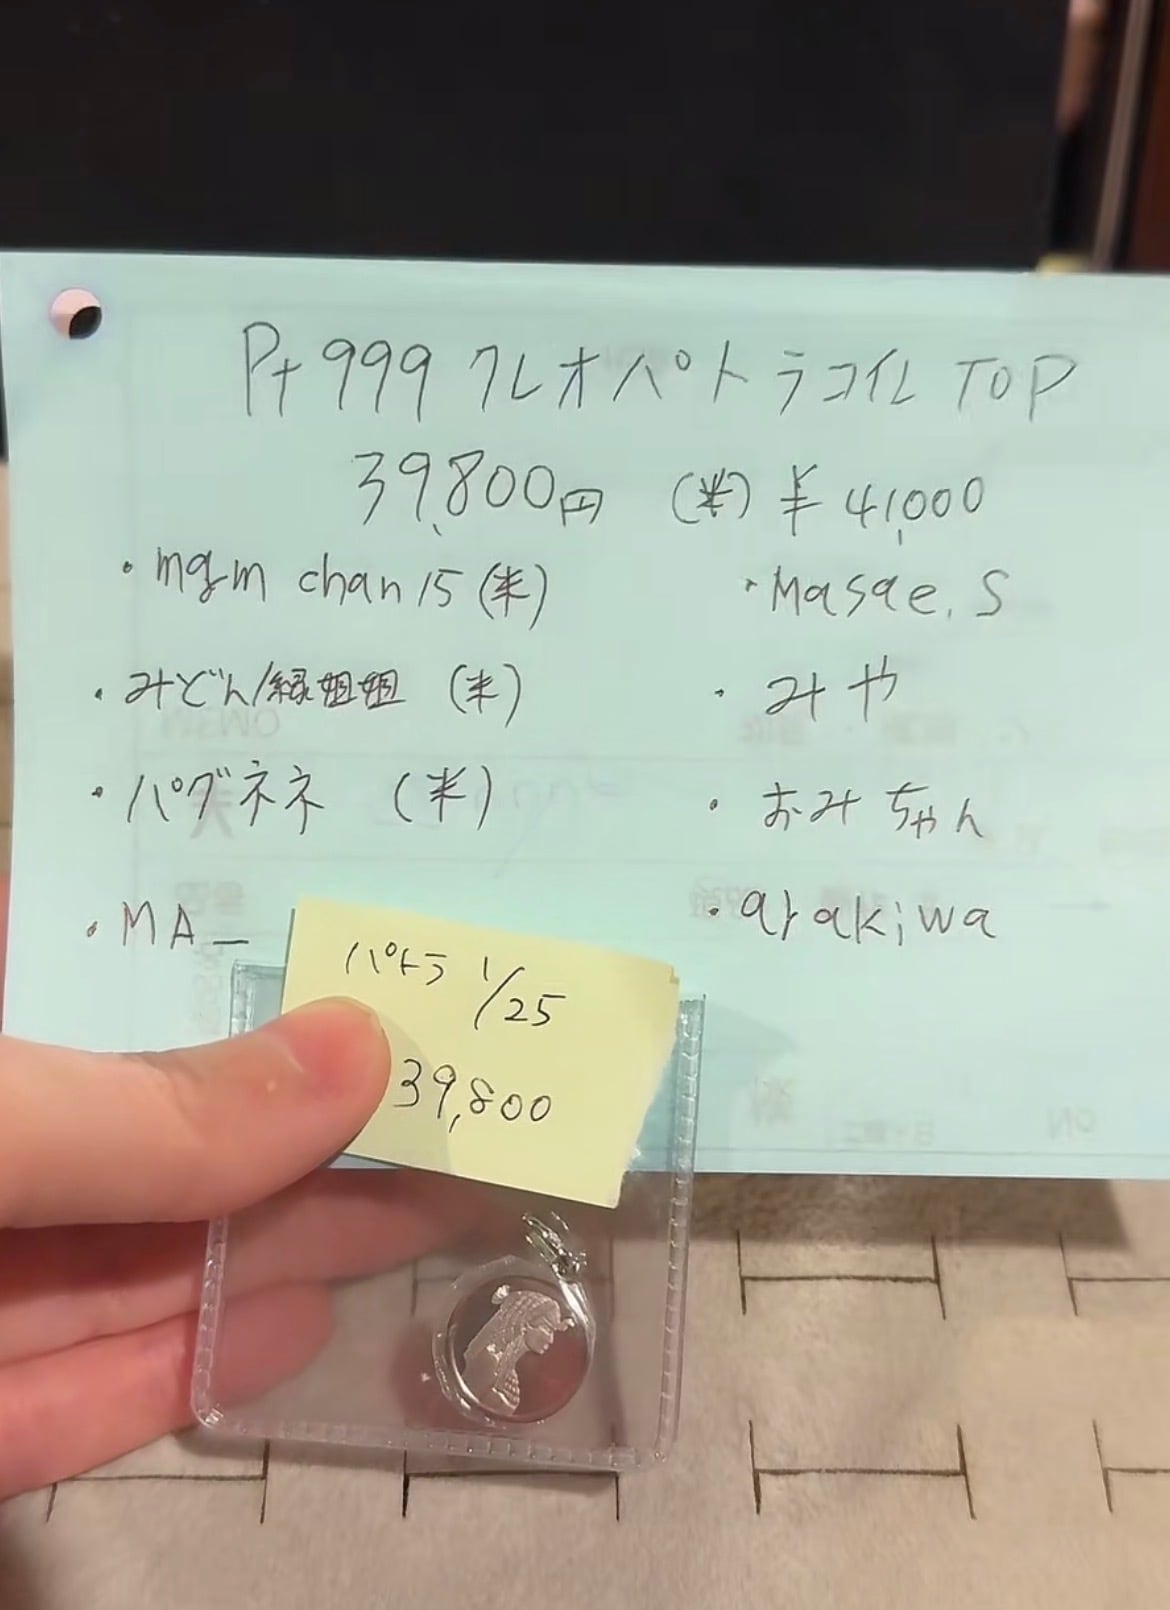 Pt 999 クレオパトラコイル TOP
39,800円 (米) ¥41,000
・mgm chan 15 (米)
・Masae.S
・みどん/緑姐姐 (米)
・みや
・パグネネ (米)
・おみちゃん
・MA_
・arakiwa
パトラ 1/25
39,800